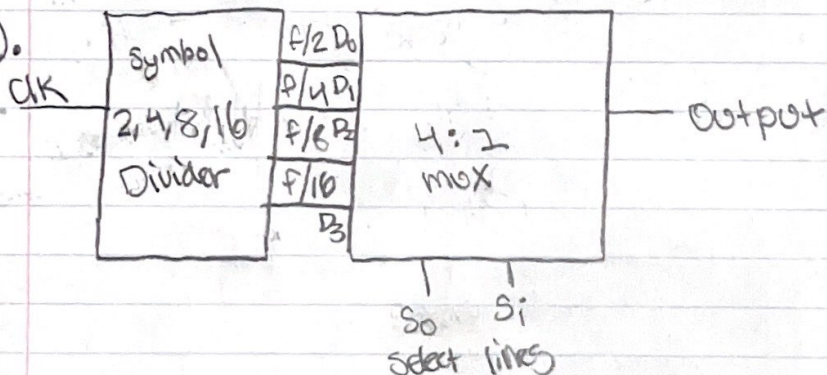 ).
Symbol
Clk
2,4,8,16
Divider
f/2 D0
f/4 D1
f/8 D2
f/16
D3
4:1
mux
Output
S0 S1
select lines